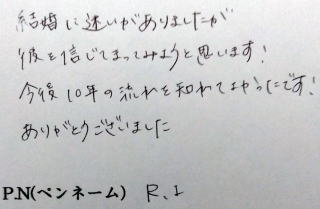 結婚に迷いがありましたが
彼を信じてまってみようと思います!
今後10年の流れを知れてよかったです!
ありがとうございました
P.N(ペンネーム) R.I